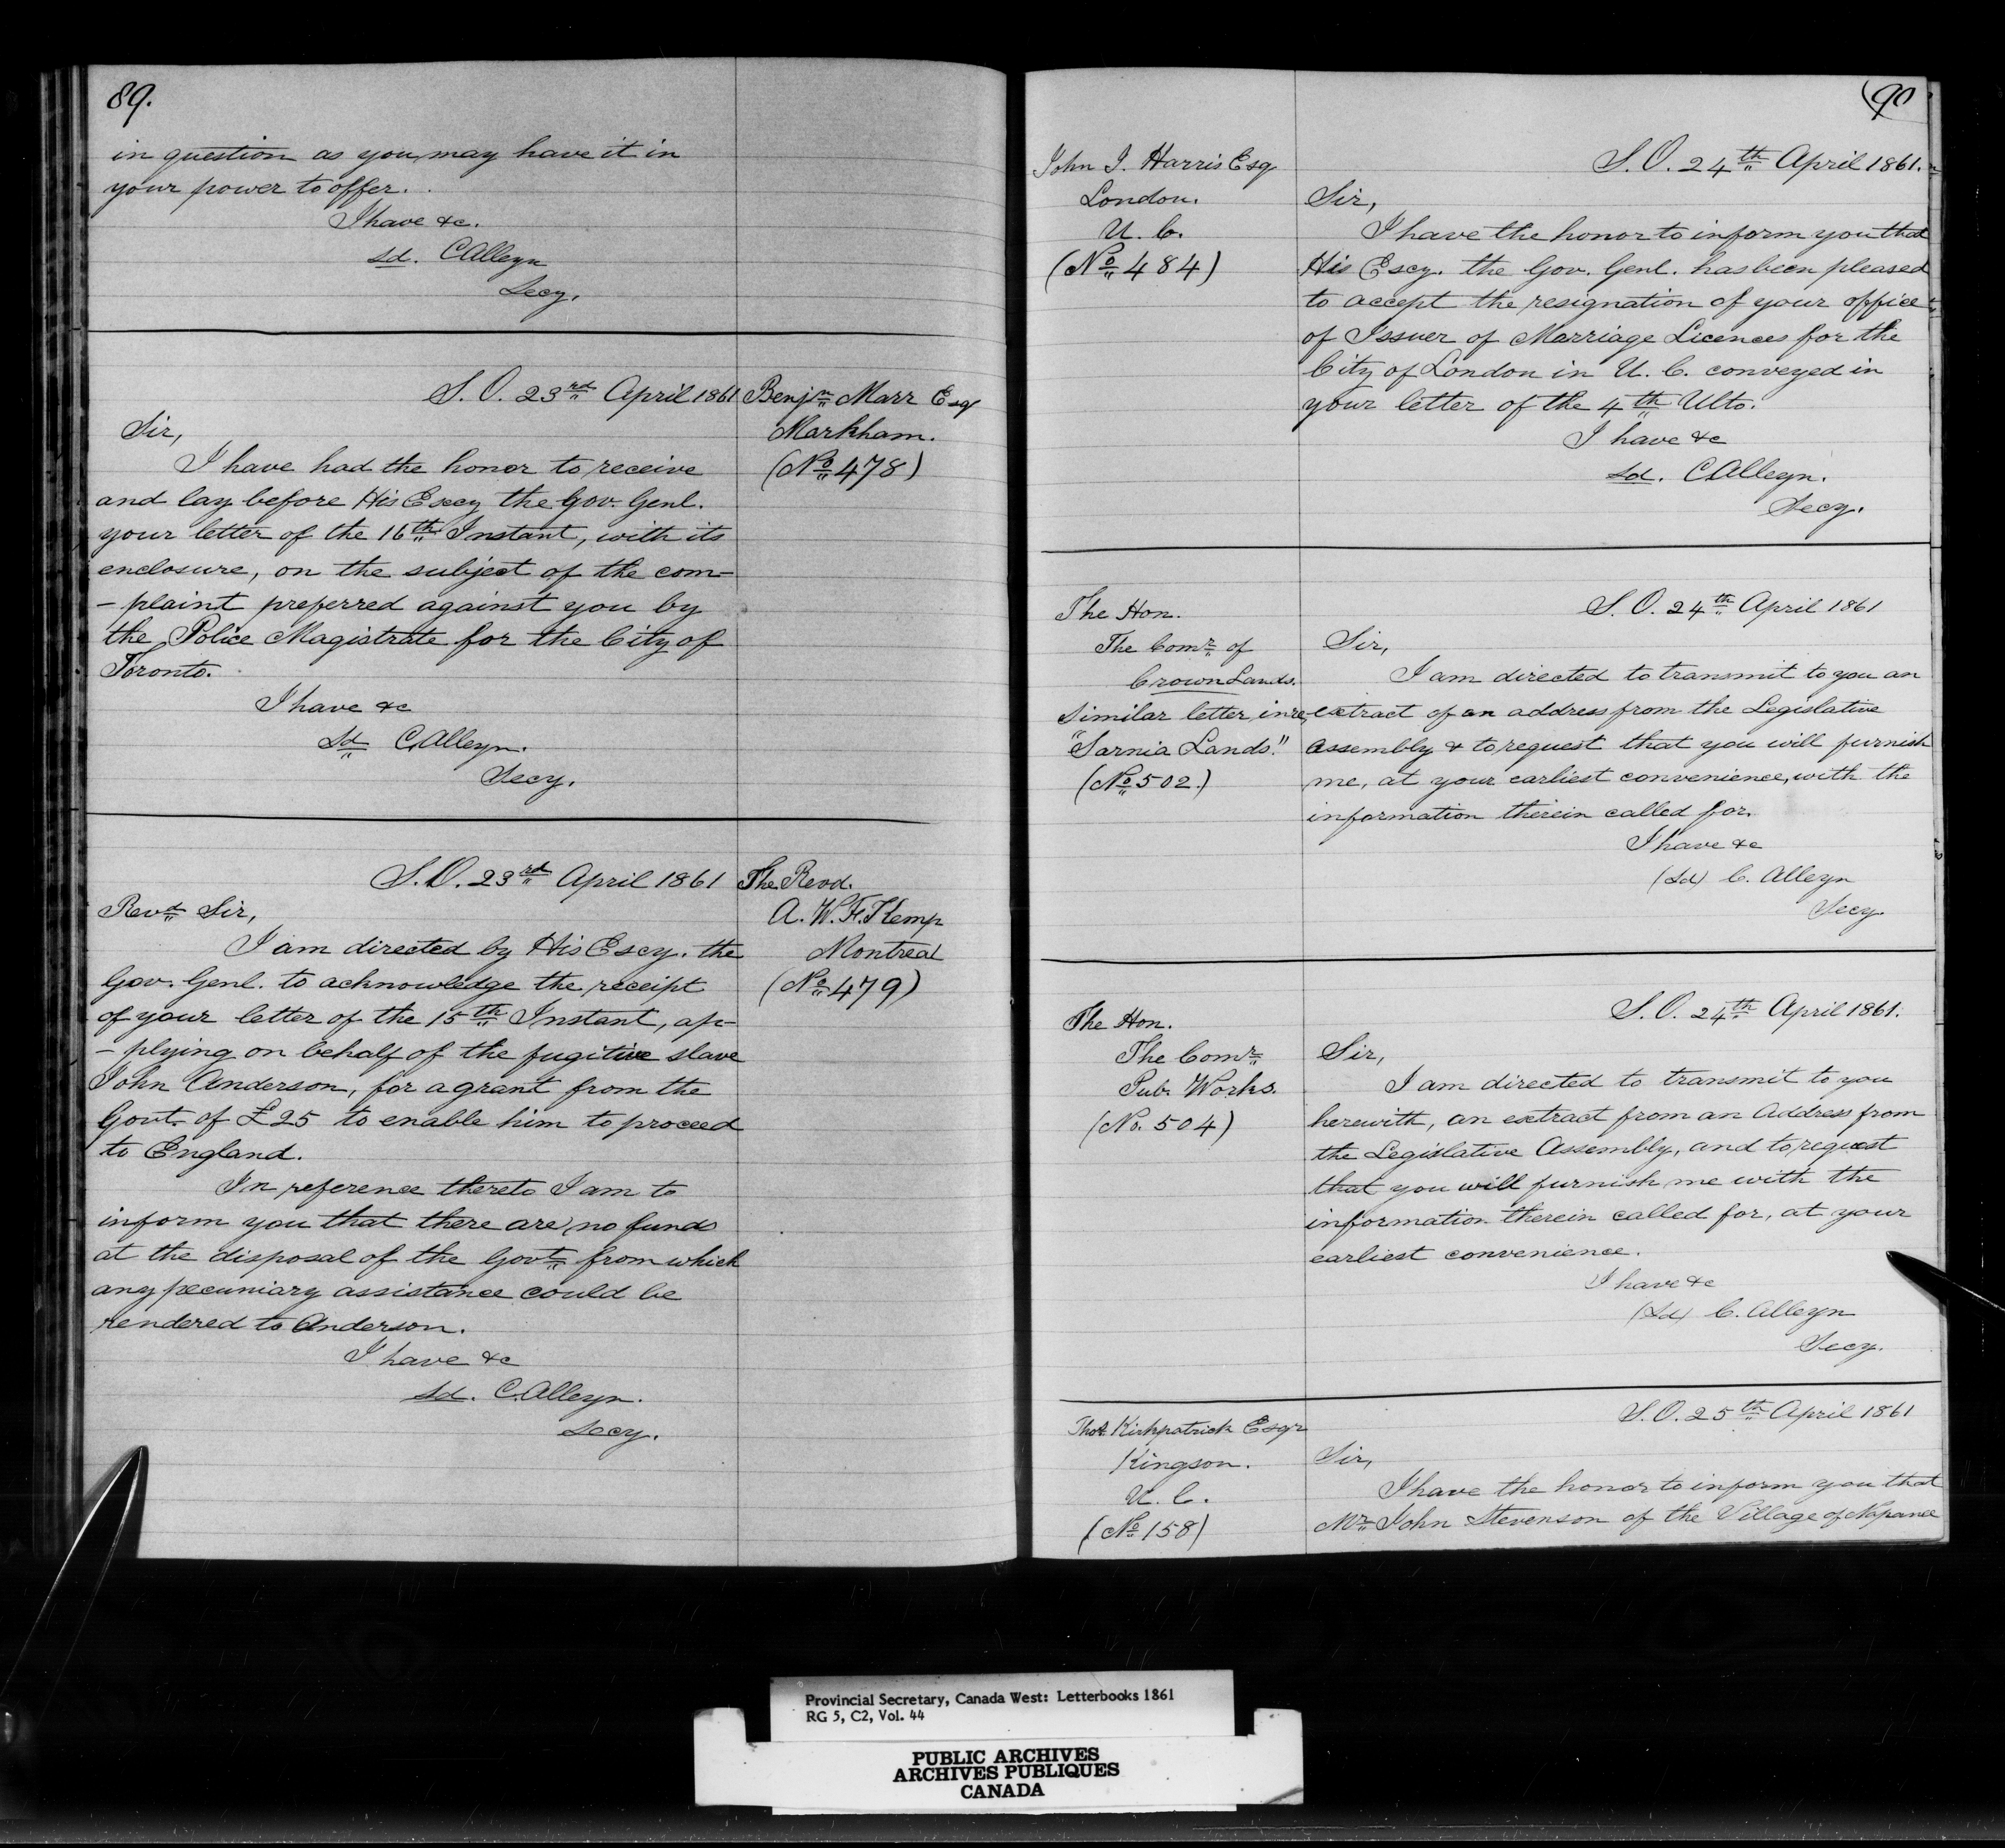 89.
in question as you may have it in
your power to offer.
I have &c.
sd. C Alleyn
Secy.
S. O. 23rd April 1861
Benjn Marr Esq
Markham.
(No 478)
Sir,
I have had the honor to receive
and lay before His Excy the Gov. Genl.
your letter of the 16th Instant, with its
enclosure, on the subject of the com-
-plaint preferred against you by
the Police Magistrate for the City of
Toronto.
I have &c
Sd C. Alleyn.
Secy.
S. O. 23rd April 1861
The Revd.
A. W. F. Kemp
Montreal
(No 479)
Revd Sir,
I am directed by His Excy. the
Gov. Genl. to acknowledge the receipt
of your letter of the 15th Instant, ap-
-plying on behalf of the fugitive slave
John Anderson, for a grant from the
Govt. of £25 to enable him to proceed
to England.
In reference thereto I am to
inform you that there are no funds
at the disposal of the Govt from which
any pecuniary assistance could be
rendered to Anderson.
I have &c
sd. C. Alleyn.
Secy.
90
John J. Harris Esq
London.
U. C.
(No 484)
S. O. 24th April 1861.
Sir,
I have the honor to inform you that
His Excy. the Gov. Genl. has been pleased
to accept the resignation of your office
of Issuer of Marriage Licences for the
City of London in U. C. conveyed in
your letter of the 4th Ulto.
I have &c
sd. C. Alleyn.
Secy.
The Hon.
The Comr of
Crown Lands.
Similar letter in re
"Sarnia Lands."
(No 502.)
S. O. 24th April 1861
Sir,
I am directed to transmit to you an
extract of an address from the Legislative
Assembly & to request that you will furnish
me, at your earliest convenience, with the
information therein called for.
I have &c
(Sd) C. Alleyn
Secy.
The Hon.
The Comr
Pub. Works.
(No. 504)
S. O. 24th April 1861.
Sir,
I am directed to transmit to you
herewith, an extract from an Address from
the Legislative Assembly, and to request
that you will furnish me with the
information therein called for, at your
earliest convenience.
I have &c
(Sd) C. Alleyn
Secy.
Thos. Kirkpatrick Esqr
Kingson.
U. C.
(No 158)
S. O. 25th April 1861
Sir,
I have the honor to inform you that
Mr John Stevenson of the Village of Napanee
Provincial Secretary, Canada West: Letterbooks 1861
RG 5, C2, Vol. 44
PUBLIC ARCHIVES
ARCHIVES PUBLIQUES
CANADA